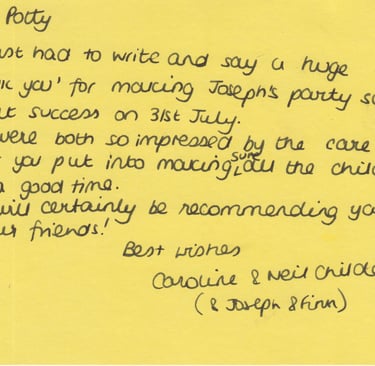 Potty
ust had to write and say a huge
you' for making Joseph's party s
t success on 31st July.
were both so impressed by the care
you put into making sure all the child
a good time.
will certainly be recommending yo
ur friends!
Best wishes
Caroline & Neil Childe
(& Joseph & Finn)